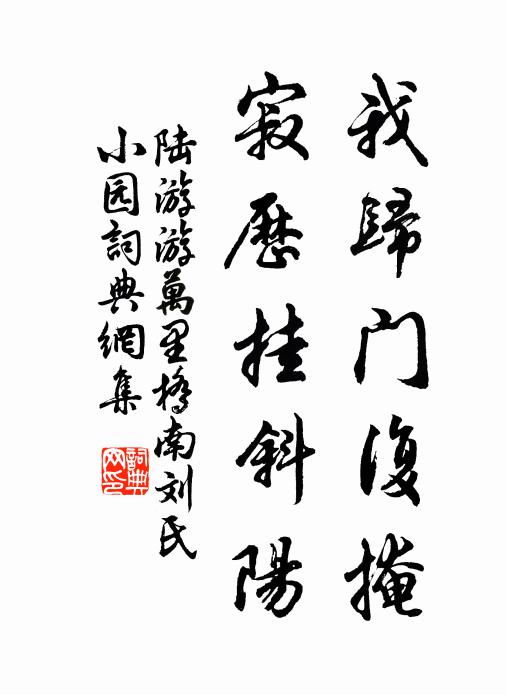 我歸门復掩
寂歷挂斜陽
陆游游萬里橋南刘氏
小园詞典網集
詞典
网印